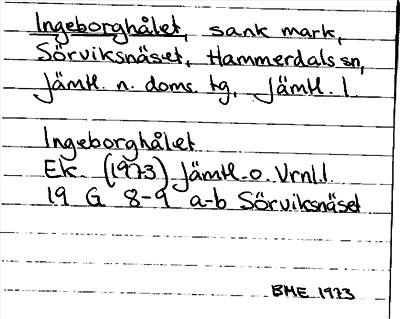 Ingeborghålet, sank mark,
Sörviksnäset, Hammerdals sn,
Jämtl. n. doms. tg, Jämtl. l
Ingeborghålet
Ek. (1973) Jämtl. o. Vrnl.l
19 G 8-9 a-b Sörviksnäset
BME 1973